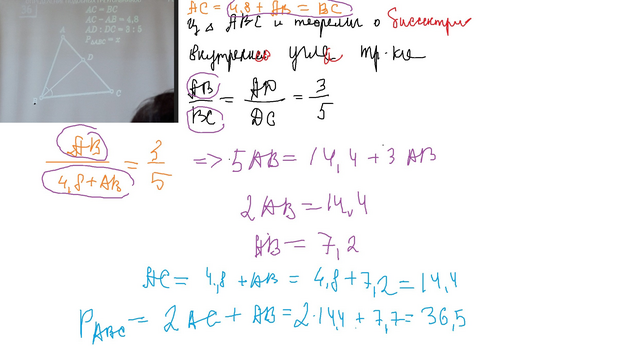 AC = BC
AC - AB = 4,8
AD : DC = 3 : 5
P_ABC = ?
A
D
C
AC = 4,8 + AB = BC
Из Δ ABC и теоремы о биссектри
внутреннего угла тр-ка
AB/BC = AD/DC = 3/5
AB/(4,8 + AB) = 3/5 => 5AB = 14,4 + 3AB
2AB = 14,4
AB = 7,2
AC = 4,8 + AB = 4,8 + 7,2 = 14,4
P_ABC = 2AC + AB = 2·14,4 + 7,7 = 36,5